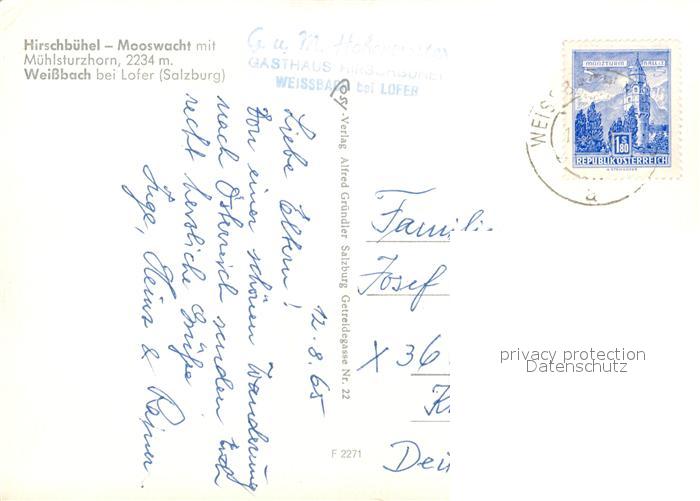 Hirschbühel – Mooswacht mit
Mühlsturzhorn, 2234 m.
Weißbach bei Lofer (Salzburg)
G. u. M.
GASTHAUS HIRSCHBÜHEL
WEISSBACH bei LOFER
12.8.65
Liebe Eltern!
Von einer schönen Wanderung
nach Österreich senden Euch
recht herzliche Grüße
Inge, Heinz & Rainer.
-Verlag Alfred Gründler Salzburg Getreidegasse Nr. 22
F 2271
MÜNZTURM HALL I.T.
1.80
REPUBLIK ÖSTERREICH
WEISS
a
Famili
Josef
X 36
K
Deu
privacy protection
Datenschutz